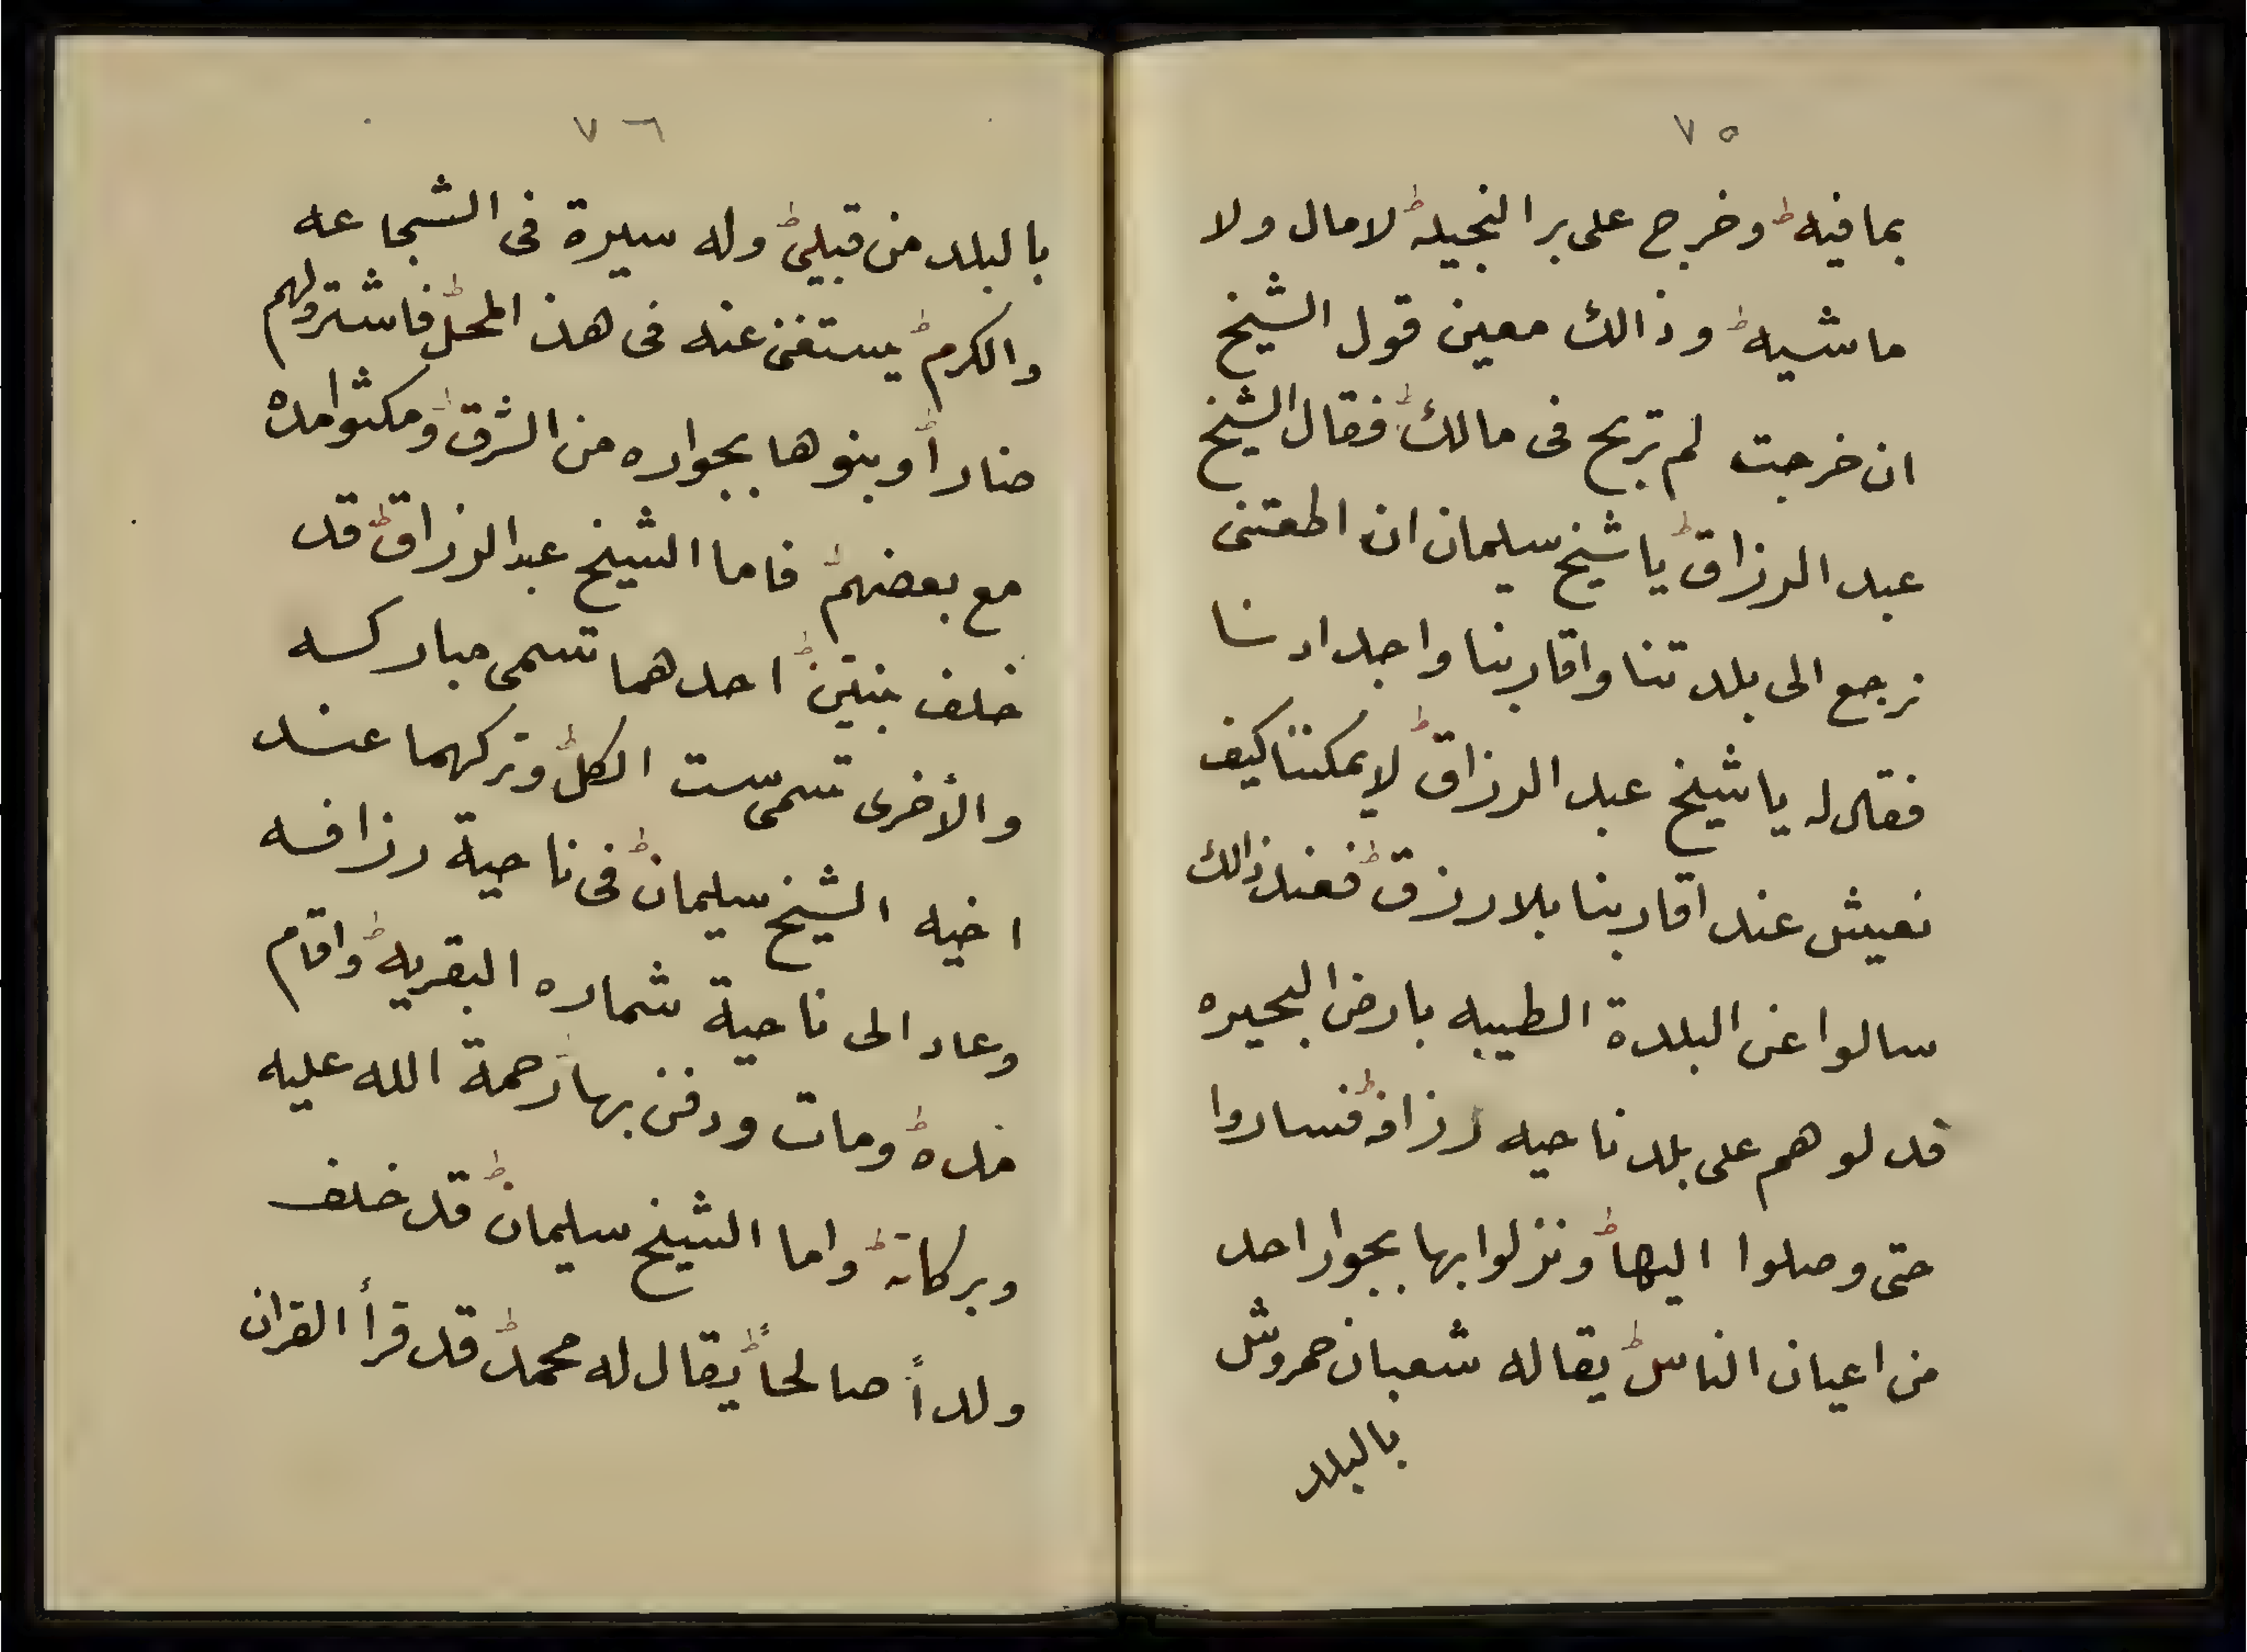 ٧٥
بمافيه ط وخرج على بر النجيله ط لامال ولا
ماشيه ط وذالك معين قول الشيخ
ان خرجت لم تربح فى مالك ط فقال الشيخ
عبد الرزاق ط ياشيخ سيلمان ان اطعتنى
نرجع الى بلدتنا واقاربنا واجدادنا
فقال له ياشيخ عبد الرزاق ط لايمكننا كيف
نعيش عند اقاربنا بلا رزق ط فعند ذالك
سالوا عن البلدة الطيبه بارض البحيره
قد لوهم على بلد ناحيه رزافه ط فساروا
حتى وصلوا اليها ط ونزلوا بها بجوار احد
من اعيان الناس ط يقاله شعبان حمروش
بالبلد
٧٦
بالبلد من قبيلى ط وله سيرة فى الشجاعه
والكرم ط يستغن عنه فى هذ المحل ط فاشترولهم
مناراً وبنوها بجواره من الشرق ط ومكثوا مده
مع بعضهم ط فاما الشيخ عبد الرزاق ط قد
خلف بنتين ط احدهما تسمى مباركه
والأخرى تسمى ست الكل ط وتركهما عند
اخيه الشيخ سليمان ط فى ناحية رزافه
وعاد الى ناحية شماره البقريه ط واقام
مده ط ومات ودفن بها رحمة الله عليه
وبركاته ط واما الشيخ سليمان ط قد خلف
ولداً صالحاً ط يقال له محمد ط قد قرأ القران